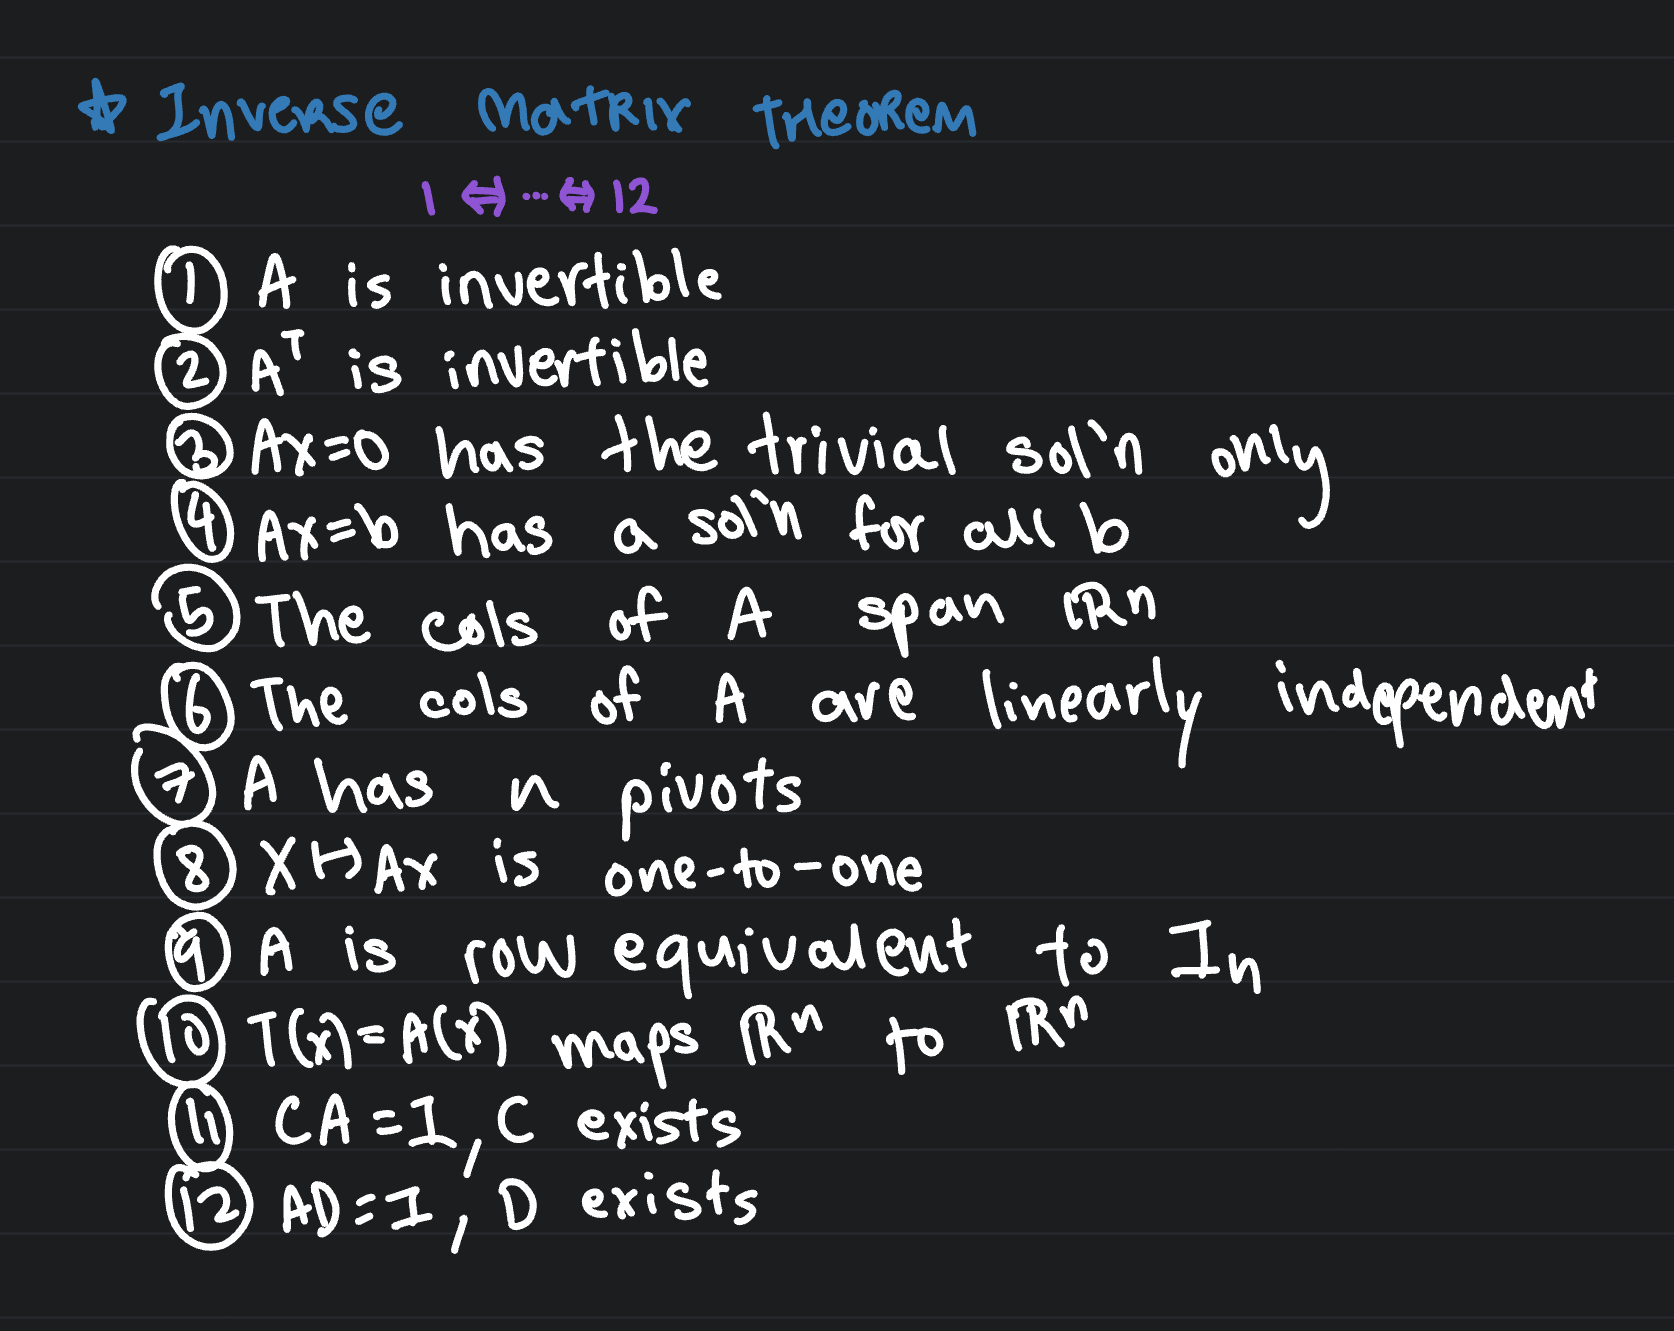 ☆ Inverse Matrix Theorem
1 ⇔ ... ⇔ 12
① A is invertible
② Aᵀ is invertible
③ Ax=0 has the trivial sol'n only
④ Ax=b has a sol'n for all b
⑤ The cols of A span ℝⁿ
⑥ The cols of A are linearly independent
⑦ A has n pivots
⑧ X↦Ax is one-to-one
⑨ A is row equivalent to Iₙ
⑩ T(x)=A(x) maps ℝⁿ to ℝⁿ
⑪ CA=I, C exists
⑫ AD=I, D exists